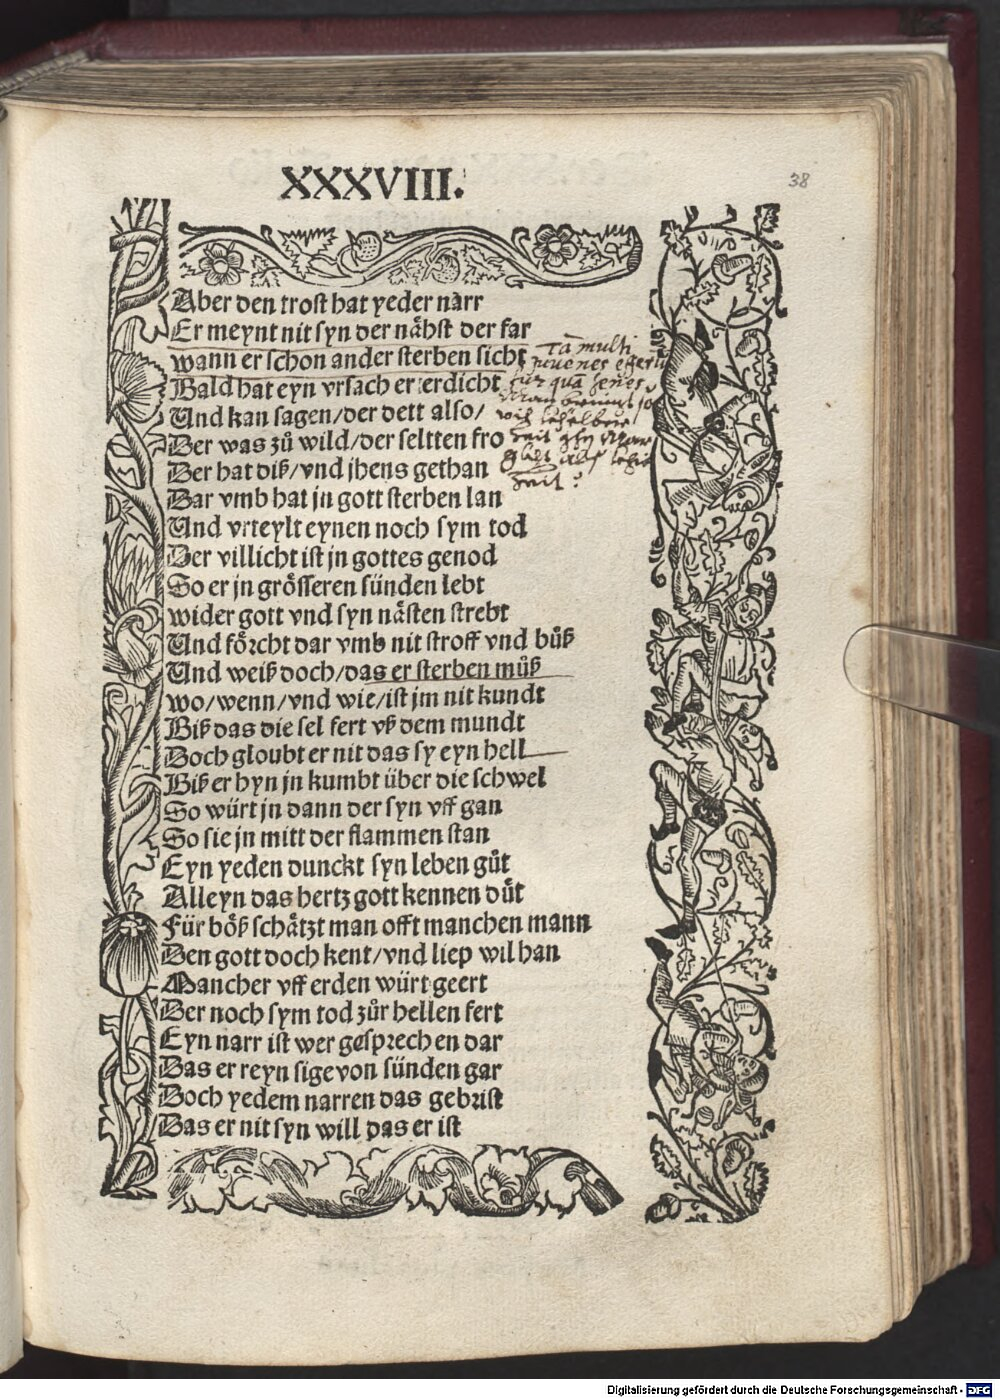 XXXVIII.
38
Aber den trost hat yeder narr
Er meynt nit syn der nåhst der far
wann er schon ander sterben sicht
Bald hat eyn vrsach er erdicht
Und kan sagen/der dett also/
Der was zů wild/der seltten fro
Der hat diß/vnd jhens gethan
Dar vmb hat jn gott sterben lan
Und vrteylt eynen noch sym tod
Der villicht ist jn gottes genod
So er jn grösseren sünden lebt
wider gott vnd syn nåsten strebt
Und fôrcht dar vmb nit stroff vnd bůß
Und weiß doch/das er sterben můß
wo/wenn/vnd wie/ist jm nit kundt
Biß das die sel fert vß dem mundt
Doch gloubt er nit das sy eyn hell
Biß er hyn jn kumbt über die schwel
So würt jn dann der syn vff gan
So sie jn mitt der flammen stan
Eyn yeden dunckt syn leben gůt
Alleyn das hertz gott kennen důt
Für böß schåtzt man offt manchen mann
Den gott doch kent/vnd liep wil han
Mancher vff erden würt geert
Der noch sym tod zůr hellen fert
Eyn narr ist wer gesprechen dar
Das er reyn sige von sünden gar
Doch yedem narren das gebrist
Das er nit syn will das er ist
Tā multi
Digitalisierung gefördert durch die Deutsche Forschungsgemeinschaft - DFG